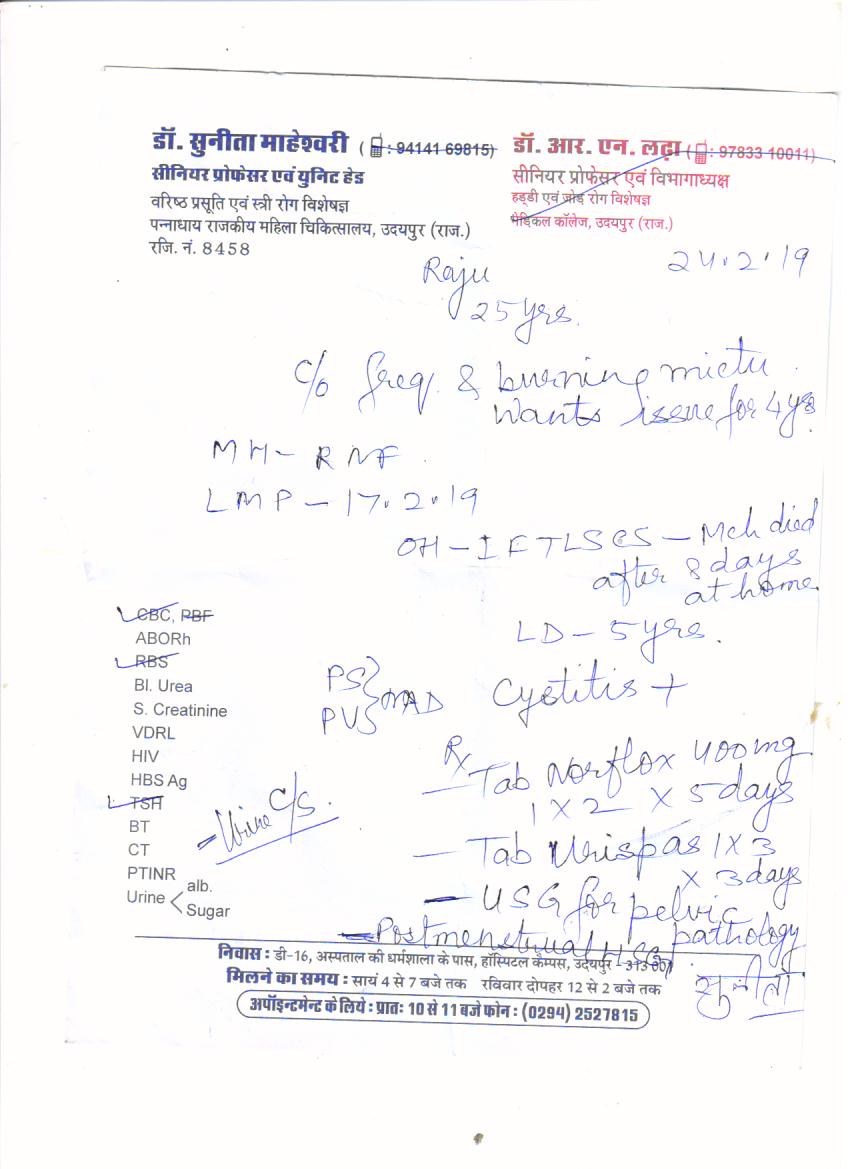 डॉ. सुनीता माहेश्वरी ( : 94141 69815)
सीनियर प्रोफेसर एवं युनिट हेड
वरिष्ठ प्रसूति एवं स्त्री रोग विशेषज्ञ
पन्नाधाय राजकीय महिला चिकित्सालय, उदयपुर (राज.)
रजि. नं. 8458
डॉ. आर. एन. लढ़ा ( : 97833 10011)
सीनियर प्रोफेसर एवं विभागाध्यक्ष
हड्डी एवं जोड़ रोग विशेषज्ञ
मेडिकल कॉलेज, उदयपुर (राज.)
24.2.19
Raju
25 yrs.
c/o freq. & burning mictu.
Wants issue for 4 yrs
MH - RNF.
LMP - 17.2.19
OH - I FTLSCS - Mch died
after 8 days
at home.
LD - 5 yrs.
CBC, PBF
ABORh
RBS
Bl. Urea
S. Creatinine
VDRL
HIV
HBS Ag
TSH
BT
CT
PTINR
Urine < alb.
Sugar
PS } NAD
PV
Cystitis +
- Urine C/S.
Rx
- Tab Norflox 400mg
1 X 2 X 5 days
- Tab Urispas 1 X 3
X 3 days
- USG for pelvic
pathology
- Postmenstrual HSG
सुनीता
निवास : डी-16, अस्पताल की धर्मशाला के पास, हॉस्पिटल कैम्पस, उदयपुर - 313 001
मिलने का समय : सायं 4 से 7 बजे तक रविवार दोपहर 12 से 2 बजे तक
अपॉइन्टमेन्ट के लिये : प्रातः 10 से 11 बजे फोन : (0294) 2527815